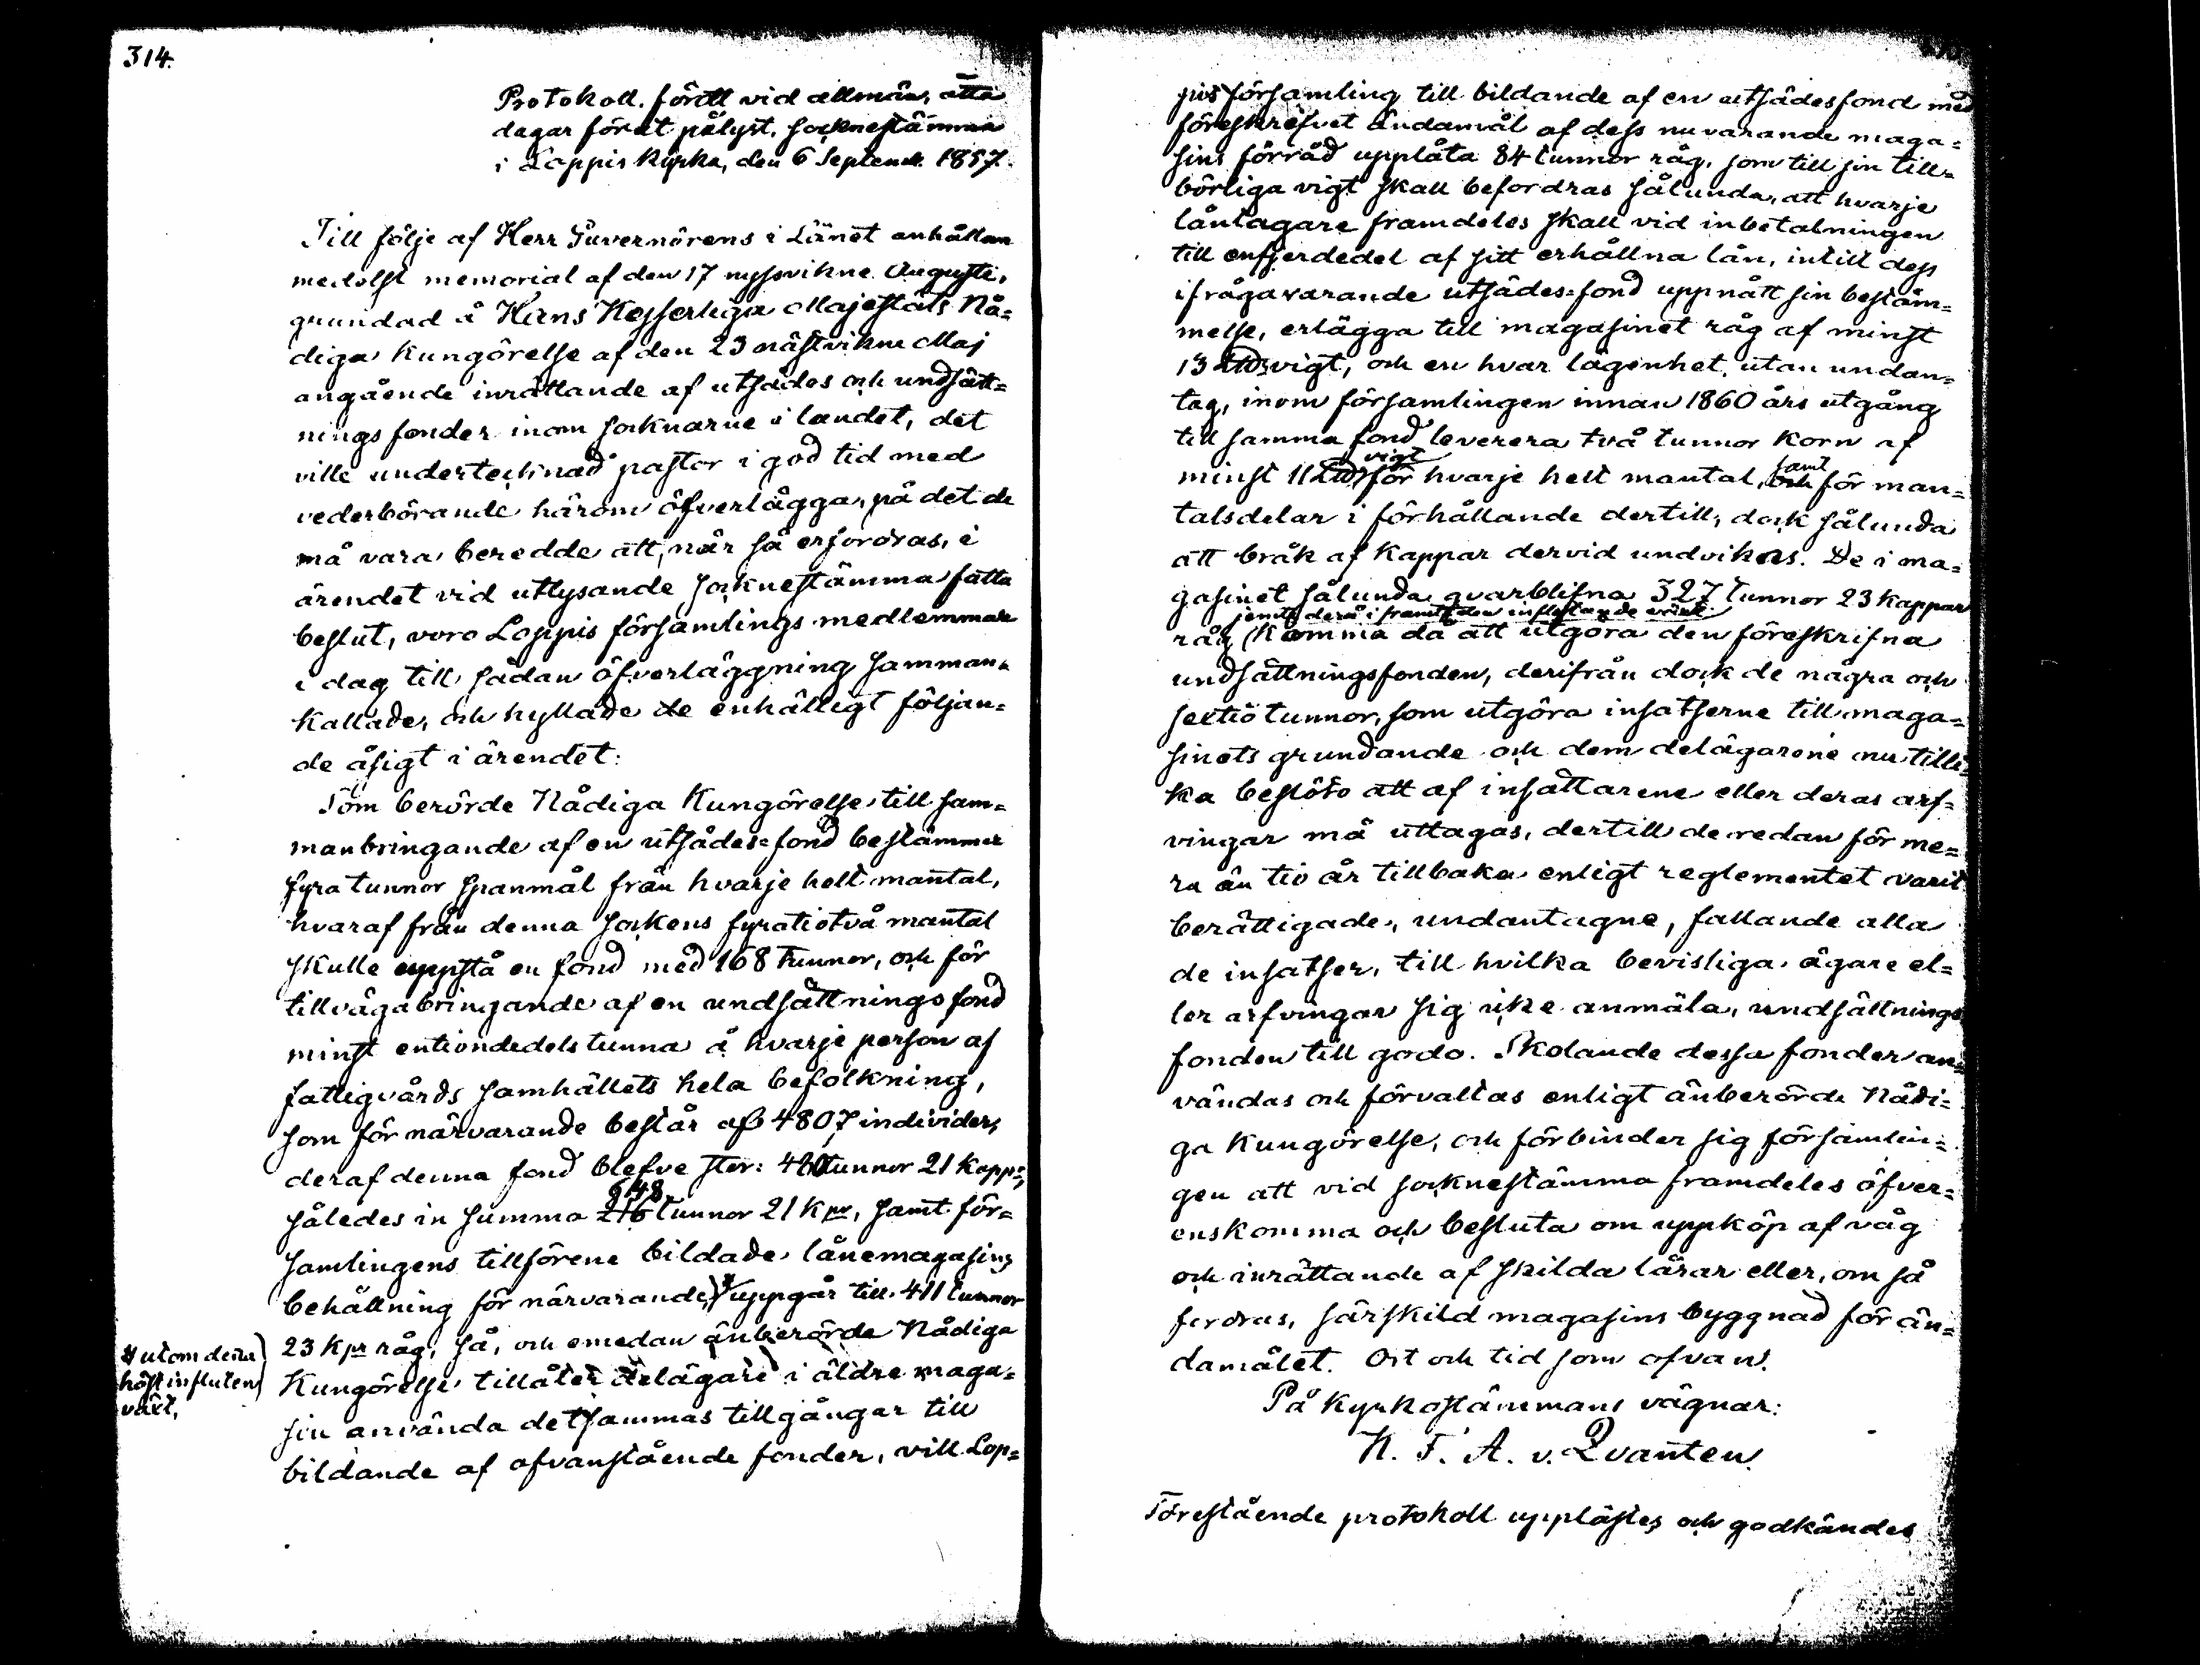 314.
Protokoll, fördt vid allmän, åtta
dagar förut pålyst, socknestämma
i Loppis Kyrka, den 6 Septemb. 1857.
Till följe af Herr Guvernörens i Länet anhållan
medelst memorial af den 17 nyssvikne Augusti,
grundad å Hans Kejserliga Majestäts Nå=
diga Kungörelse af den 23 nästvikne Maj
angående inrättande af utsädes och undsätt=
nings fonder inom socknarne i landet, det
ville undertecknad pastor i god tid med
vederbörande härom öfverlägga, på det de
må vara beredde att, när så erfordras, i
ärendet vid utlysande socknestämma fatta
beslut, voro Loppis församlings medlemmar
i dag till sådan öfverläggning samman=
kallade, och hyllade de enhälligt följan=
de åsigt i ärendet:
Som berörde Nådiga Kungörelse till sam=
manbringande af en utsädes=fond bestämmer
fyra tunnor spanmål från hvarje helt mantal,
hvaraf från denna sockens fyratiotvå mantal
skulle uppstå en fond med 168 tunnor, och för
tillvägabringande af en undsättnings fond
minst entiondedels tunna å hvarje person af
fattigvårds samhällets hela befolkning,
som för närvarande består af 4807 individer,
deraf denna fond blefve stor: 480 tunnor 21 kappr,
648
således in summa 216 tunnor 21 kpr, samt för=
samlingens tillförene bildade lånemagasins
behållning för närvarande, # uppgår till 411 tunnor
23 kpr råg, så, och emedan änberörde Nådiga
# utom denna
höst influten
växt,
Kungörelse tillåter delägare i äldre maga=
sin använda detsammas tillgångar till
bildande af ofvanstående fonder, vill Lop=
pis församling till bildande af en utsädesfond med
föreskrefvet ändamål af dess nuvarande maga=
sins förråd upplåta 84 tunnor råg, som till sin till=
börliga vigt skall befordras sålunda, att hvarje
låntagare framdeles skall vid inbetalningen
till enfjerdedel af sitt erhållna lån, intill dess
ifrågavarande utsädes=fond uppnått sin bestäm=
melse, erlägga till magasinet råg af minst
13 L℔ vigt, och en hvar lägenhet, utan undan=
tag, inom församlingen innan 1860 års utgång
till samma fond leverera två tunnor korn af
vigt samt
minst 11 L℔ för hvarje helt mantal, och för man=
talsdelar i förhållande dertill, dock sålunda
att bråk af kappar dervid undvikes. De i ma=
gasinet sålunda qvarblifna 327 tunnor 23 kappar
jemte derå i framtiden inflytande växt
råg komma då att utgöra den föreskrifna
undsättningsfonden, derifrån dock de några och
sextiö tunnor, som utgöra insatserne till maga=
sinets grundande och dem delägarene nu tilli=
ka beslöto att af insattarene eller deras arf=
vingar må uttagas, dertill de redan för me=
ra än tio år tillbaka enligt reglementet varit
berättigade, undantagne, fallande alla
de insatser, till hvilka bevisliga ägare el=
ler arfvingar sig icke anmäla, undsättnings
fonden till godo. Skolande dessa fonder an=
vändas och förvaltas enligt änberörde Nådi=
ga Kungörelse, och förbinder sig församlin=
gen att vid socknestämma framdeles öfver=
enskomma och besluta om uppköp af våg
och inrättande af skilda lårar eller, om så
fordras, särskild magasins byggnad för än=
damålet. Ort och tid som ofvan.
På Kyrkostämmans vägnar:
N. F. A. v. Qvanten.
Förestående protokoll upplästes och godkändes